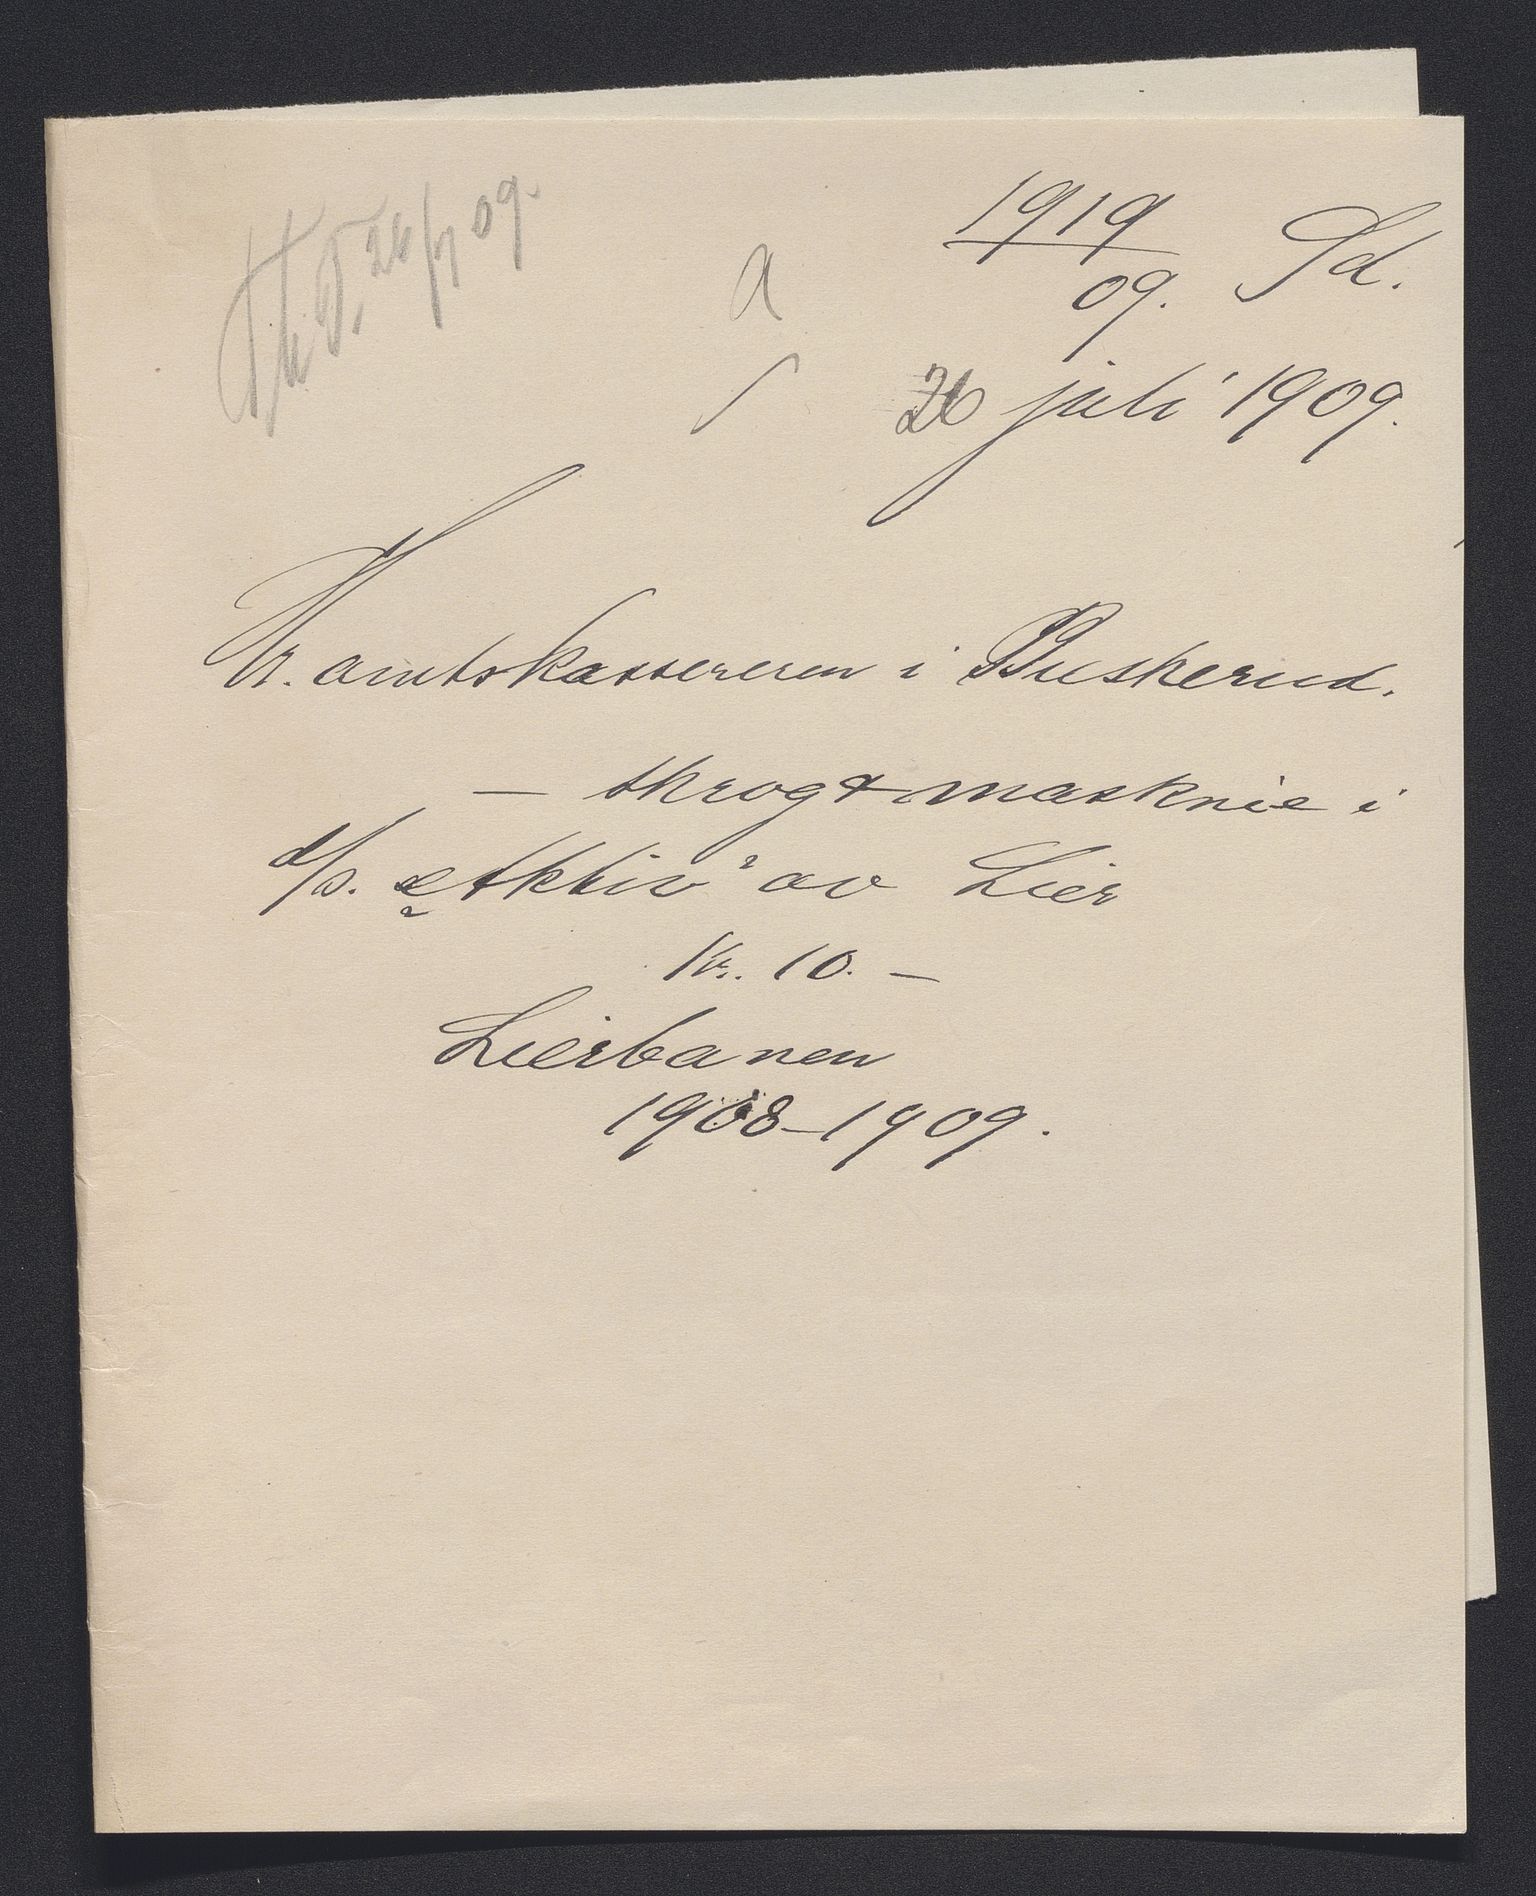 26/7 09.
1919
09. Sd.
a
26 juli 1909.
Hr. amtskassereren i Buskerud.
— skrog & masknie i
d/s. „Aktiv" av Lier
Kr. 10. —
Lierbanen
1908–1909.